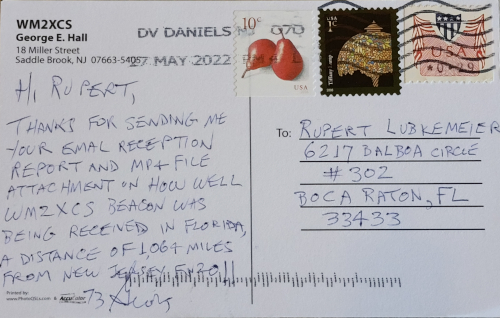 WM2XCS
George E. Hall
18 Miller Street
Saddle Brook, NJ 07663-5405
DV DANIELS NJ 070
17 MAY 2022 PM 4 L
10¢
USA
USA
1¢
Tiffany Lamp
USA
HI RUPERT,
THANKS FOR SENDING ME
YOUR EMAIL RECEPTION
REPORT AND MP4 FILE
ATTACHMENT ON HOW WELL
WM2XCS BEACON WAS
BEING RECEIVED IN FLORIDA,
A DISTANCE OF 1,064 MILES
FROM NEW JERSEY
73
To: RUPERT LUBKEMEIER
6217 BALBOA CIRCLE
# 302
BOCA RATON, FL
33433
Printed by:
www.PhotoQSLs.com & AccuColor